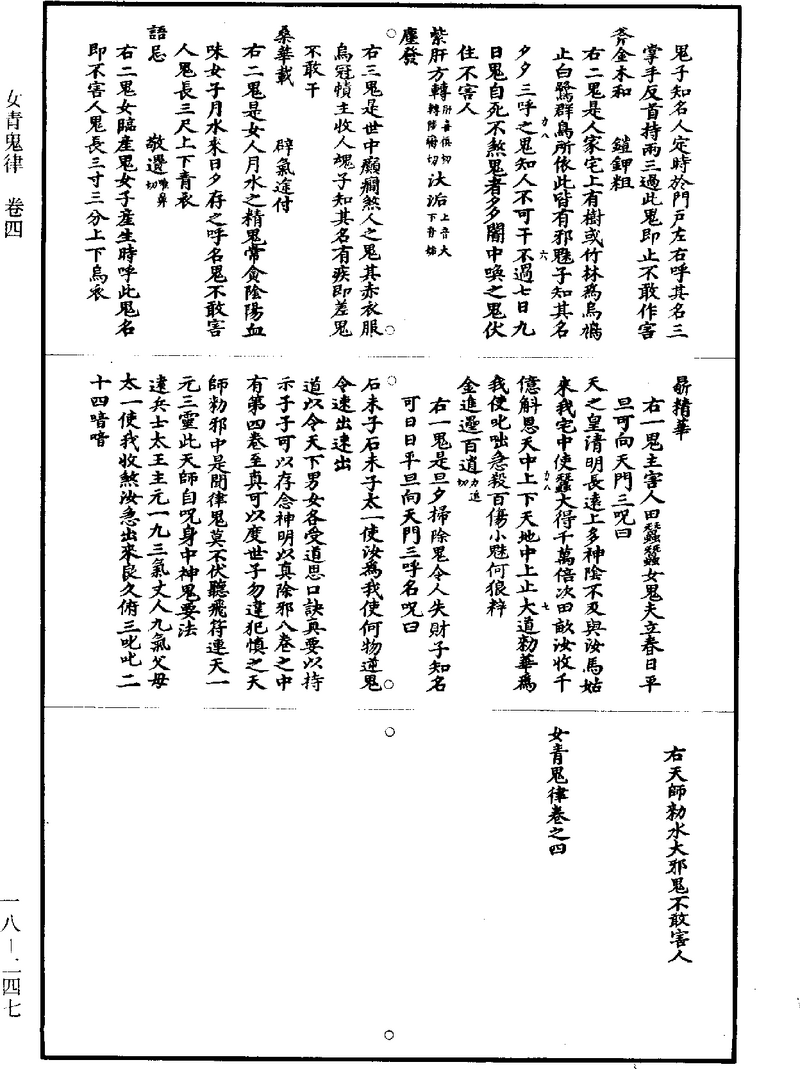 鬼子知名人定時於門戶左右呼其名三
掌手反首持兩三過此鬼即止不敢作害
斧金本和　鎧鉀粗
右二鬼是人家宅上有樹或竹林為烏鵶
止白鷺群鳥所依此皆有邪魅子知其名
夕夕三呼之鬼知人不可干不過七日九
日鬼自死不煞鬼者夕夕闇中喚之鬼伏
住不害人
紫肝方轉 汏洉 上音大下音
塵發
右三鬼是世中癲癇煞人之鬼其赤衣服
烏冠幘主收人魂子知其名有疾即差鬼
不敢干
桑華載　辟氣逢付
右二鬼是女人月水之精鬼常貪陰陽血
味女子月水來日夕存之呼名鬼不敢害
人鬼長三尺上下青衣
語忌　敬遺
右二鬼女臨産鬼女子産生時呼此鬼名
即不害人鬼長三寸三分上下烏衣
力八
六
右一鬼主害人田蠶蠶女鬼夫立春日平
旦可向天門三呪曰
天之皇清明長遠上多神陰不及與汝馬姑
來我宅中使蠶大得千萬倍次田畝汝收千
億斛恩天中上下天地中上止大道勑華為
我使叱咄急殺百傷小魅何狼粹
金進邊百逍
右一鬼是旦夕掃除鬼令人失財子知名
可日日平旦向天門三呼名呪曰
石未子石未子太一使汝為我使何物逆鬼
令速出速出
道以令天下男女各受道思口訣真要以持
示子子可以存念神明以真除邪八卷之中
有第四卷至真可以度世子勿違犯慎之天
師勑邪中是聞律鬼莫不伏聽飛符連天一
元三靈此天師自呪身中神鬼要法
遠兵士太王主元一九三氣丈人九氣父母
太一使我收煞汝急出來良久俯三叱叱二
十四喑喑
力八
七
右天師勑水大邪鬼不敢害人
女青鬼律卷之四
女青鬼律　卷四
一八—二四七